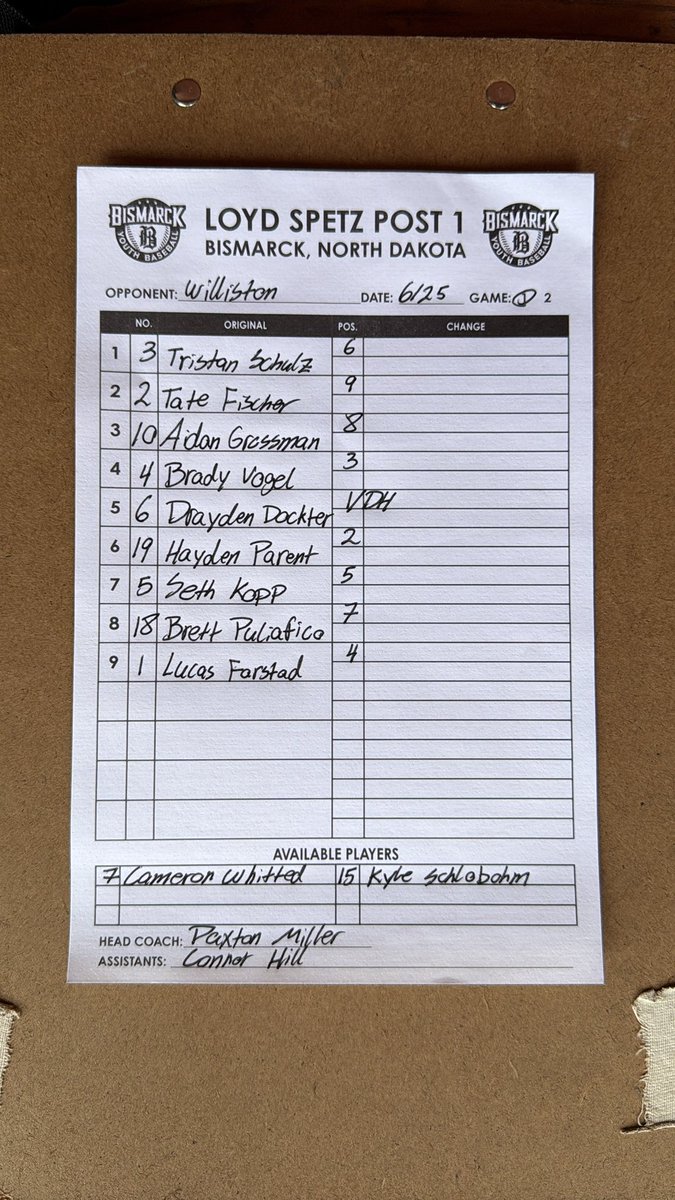 BISMARCK B YOUTH BASEBALL
LOYD SPETZ POST 1
BISMARCK, NORTH DAKOTA
BISMARCK B YOUTH BASEBALL
OPPONENT: Williston DATE: 6/25 GAME: 1 2
NO. ORIGINAL POS. CHANGE
1 3 Tristan Schulz 6
2 2 Tate Fischer 9
3 10 Aidan Grossman 8
4 4 Brady Vogel 3
5 6 Drayden Dockter 1/DH
6 19 Hayden Parent 2
7 5 Seth Kopp 5
8 18 Brett Puliafico 7
9 1 Lucas Farstad 4
AVAILABLE PLAYERS
7 Cameron Whitted 15 Kyle Schlabohm
HEAD COACH: Paxton Miller
ASSISTANTS: Connor Hill